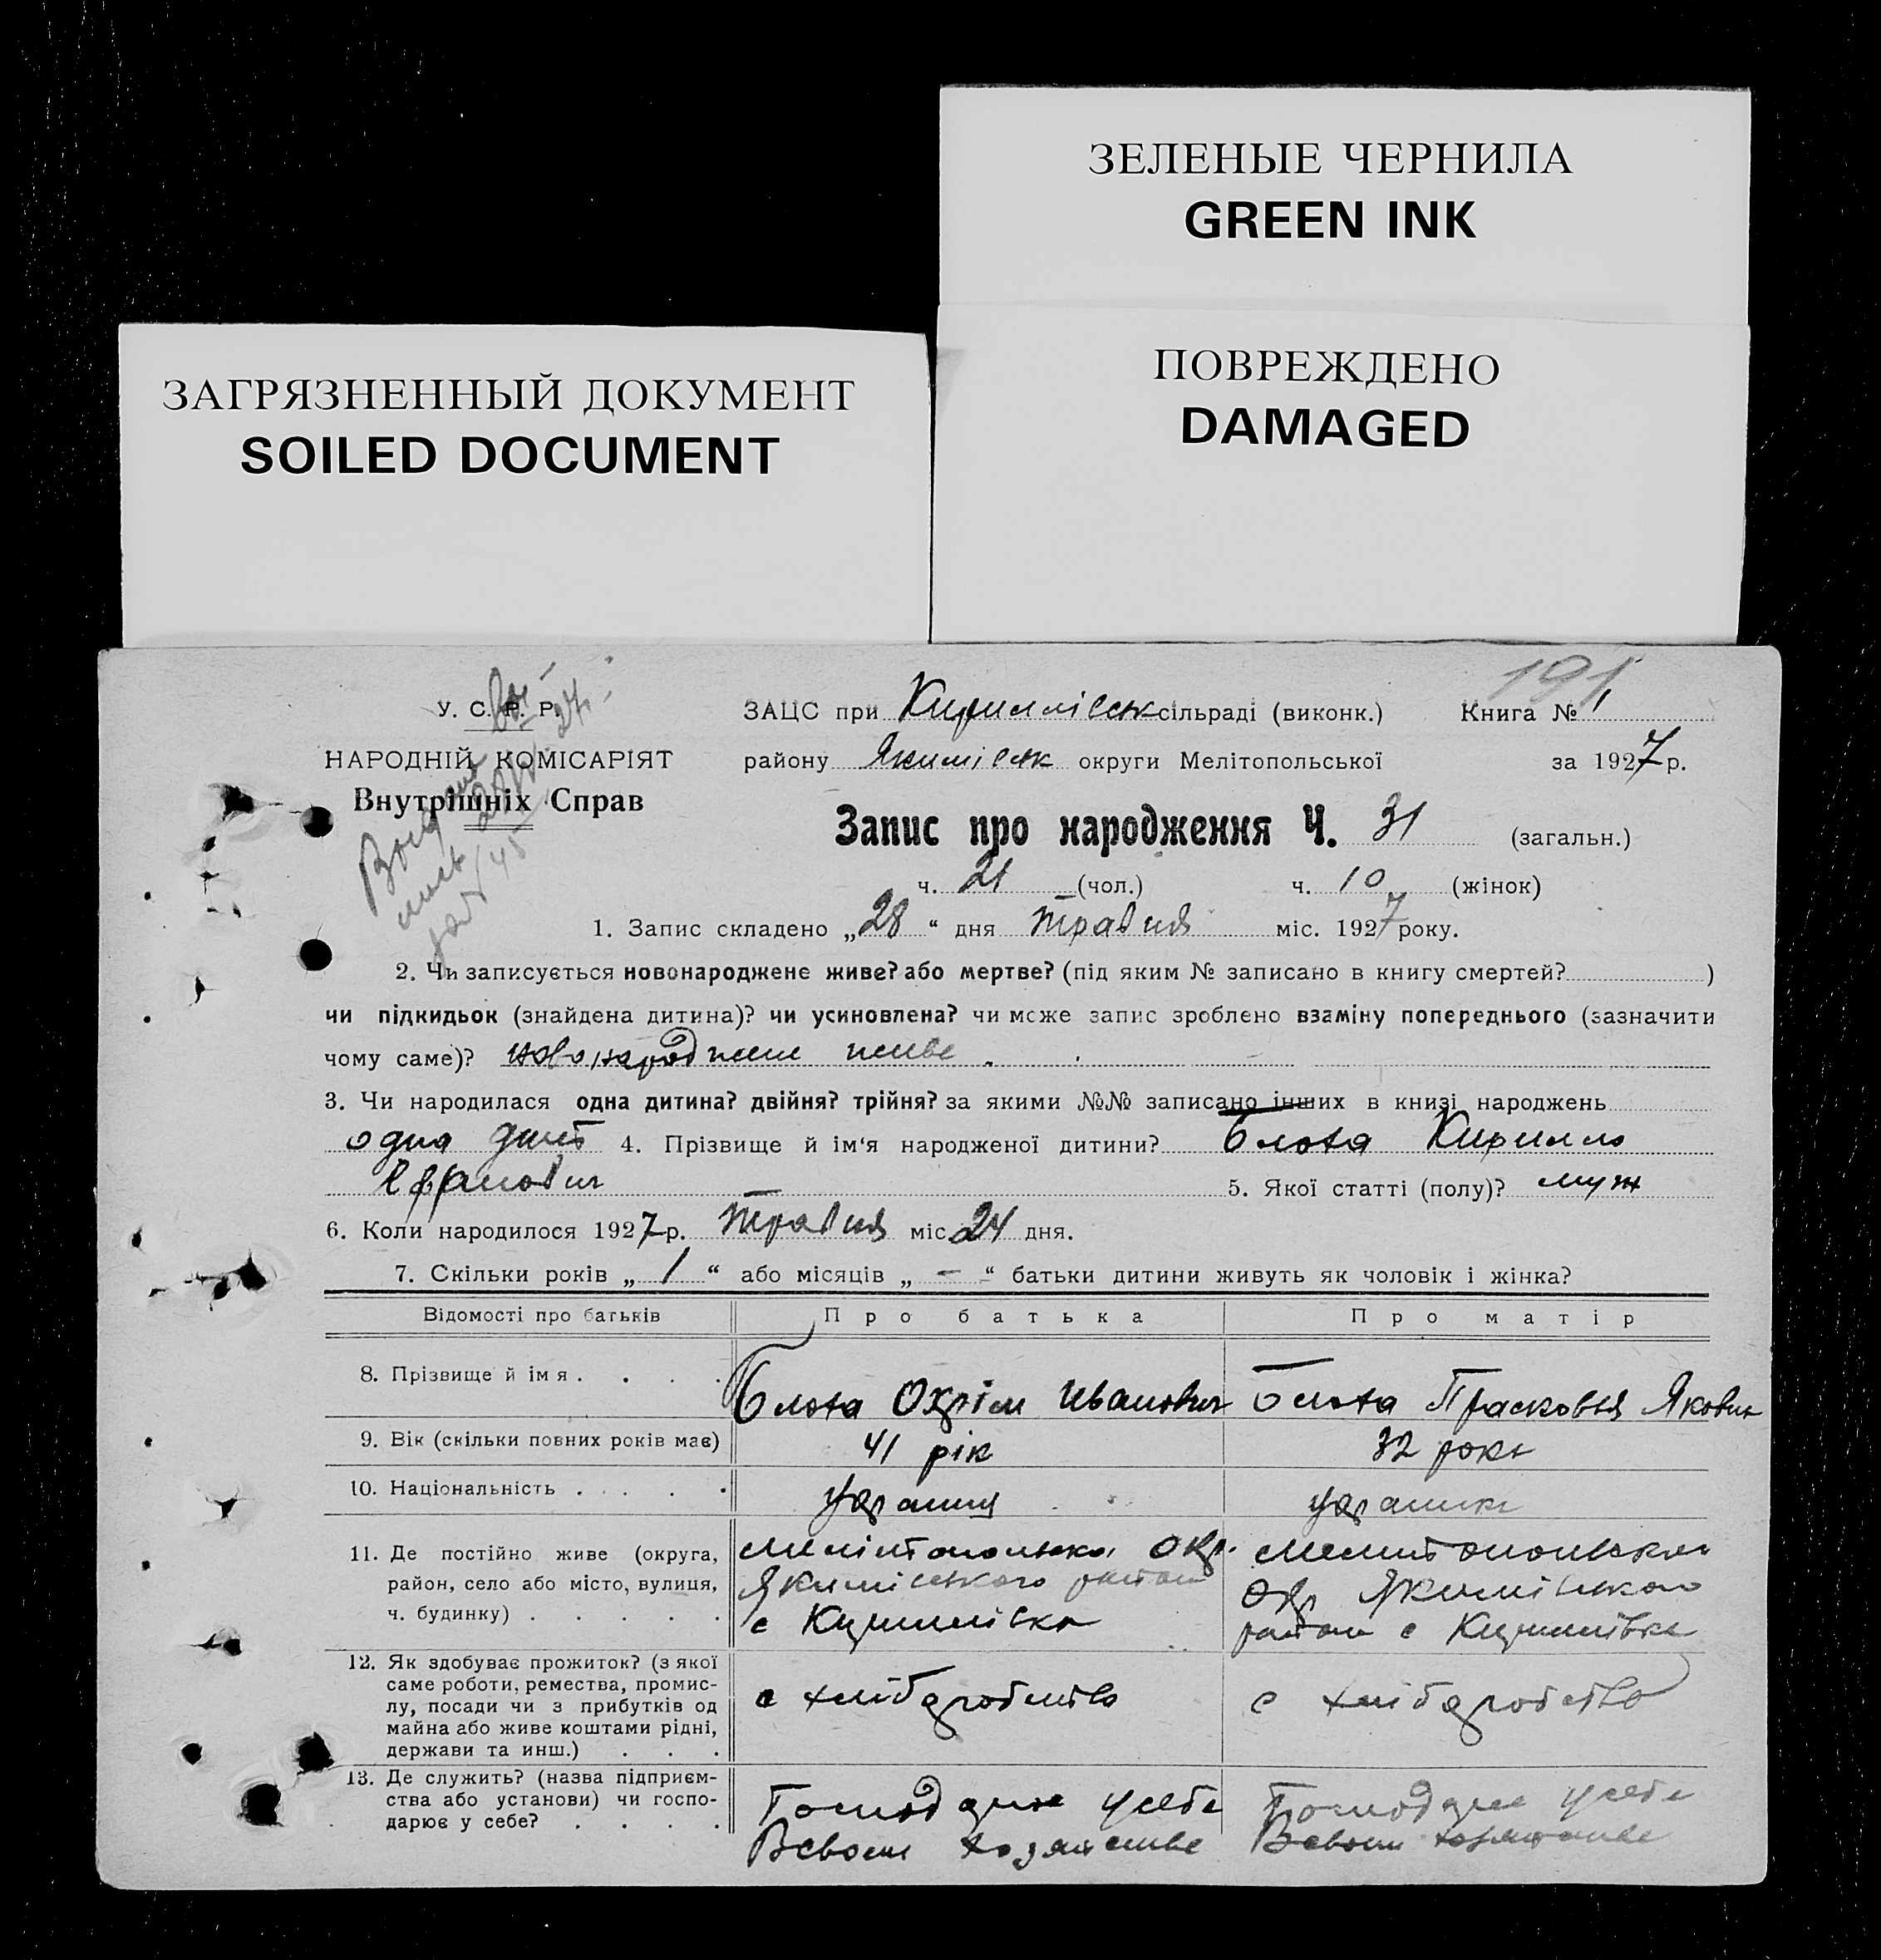 ЗЕЛЕНЫЕ ЧЕРНИЛА
GREEN INK
ЗАГРЯЗНЕННЫЙ ДОКУМЕНТ
SOILED DOCUMENT
ПОВРЕЖДЕНО
DAMAGED
191
У. С. Р. Р.
НАРОДНІЙ КОМІСАРІЯТ
Внутрішніх Справ
ЗАЦС при Кириллівськ сільраді (виконк.) Книга № 1
району Якимівськ округи Мелітопольської за 1927 р.
Запис про народження Ч. 31 (загальн.)
ч. 21 (чол.) ч. 10 (жінок)
1. Запис складено „28“ дня травня міс. 1927 року.
2. Чи записується новонароджене живе? або мертве? (під яким № записано в книгу смертей? )
чи підкидьок (знайдена дитина)? чи усиновлена? чи може запис зроблено взаміну попереднього (зазначити
чому саме)? новонароджене живе
3. Чи народилася одна дитина? двійня? трійня? за якими №№ записано інших в книзі народжень
одна дит 4. Прізвище й ім‘я народженої дитини? Блоха Кирилло
5. Якої статті (полу)? муж
6. Коли народилося 1927 р. травня міс. 24 дня.
7. Скільки років „1“ або місяців „—“ батьки дитини живуть як чоловік і жінка?
Відомості про батьків Про батька Про матір
8. Прізвище й імя . . . . Блоха Охрім Иванович Блоха Прасковья Яковна
9. Вік (скільки повних років має) 41 рік 32 роки
10. Національність . . . . украинц украинк
11. Де постійно живе (округа,
район, село або місто, вулиця,
ч. будинку) . . . . .
Мелітопольска окр.
Якимівського район
с Кириллівка
Мелитопольская
окр Якимівського
район с Кириллівка
12. Як здобуває прожиток? (з якої
саме роботи, ремества, промис-
лу, посади чи з прибутків од
майна або живе коштами рідні,
держави та инш.) . . .
с хлібдробство
с хлібдробство
13. Де служить? (назва підприєм-
ства або установи) чи госпо-
дарює у себе? . . . .
Господарює у себе
В своем хозяистве
Господарює у себе
В своем хозяистве